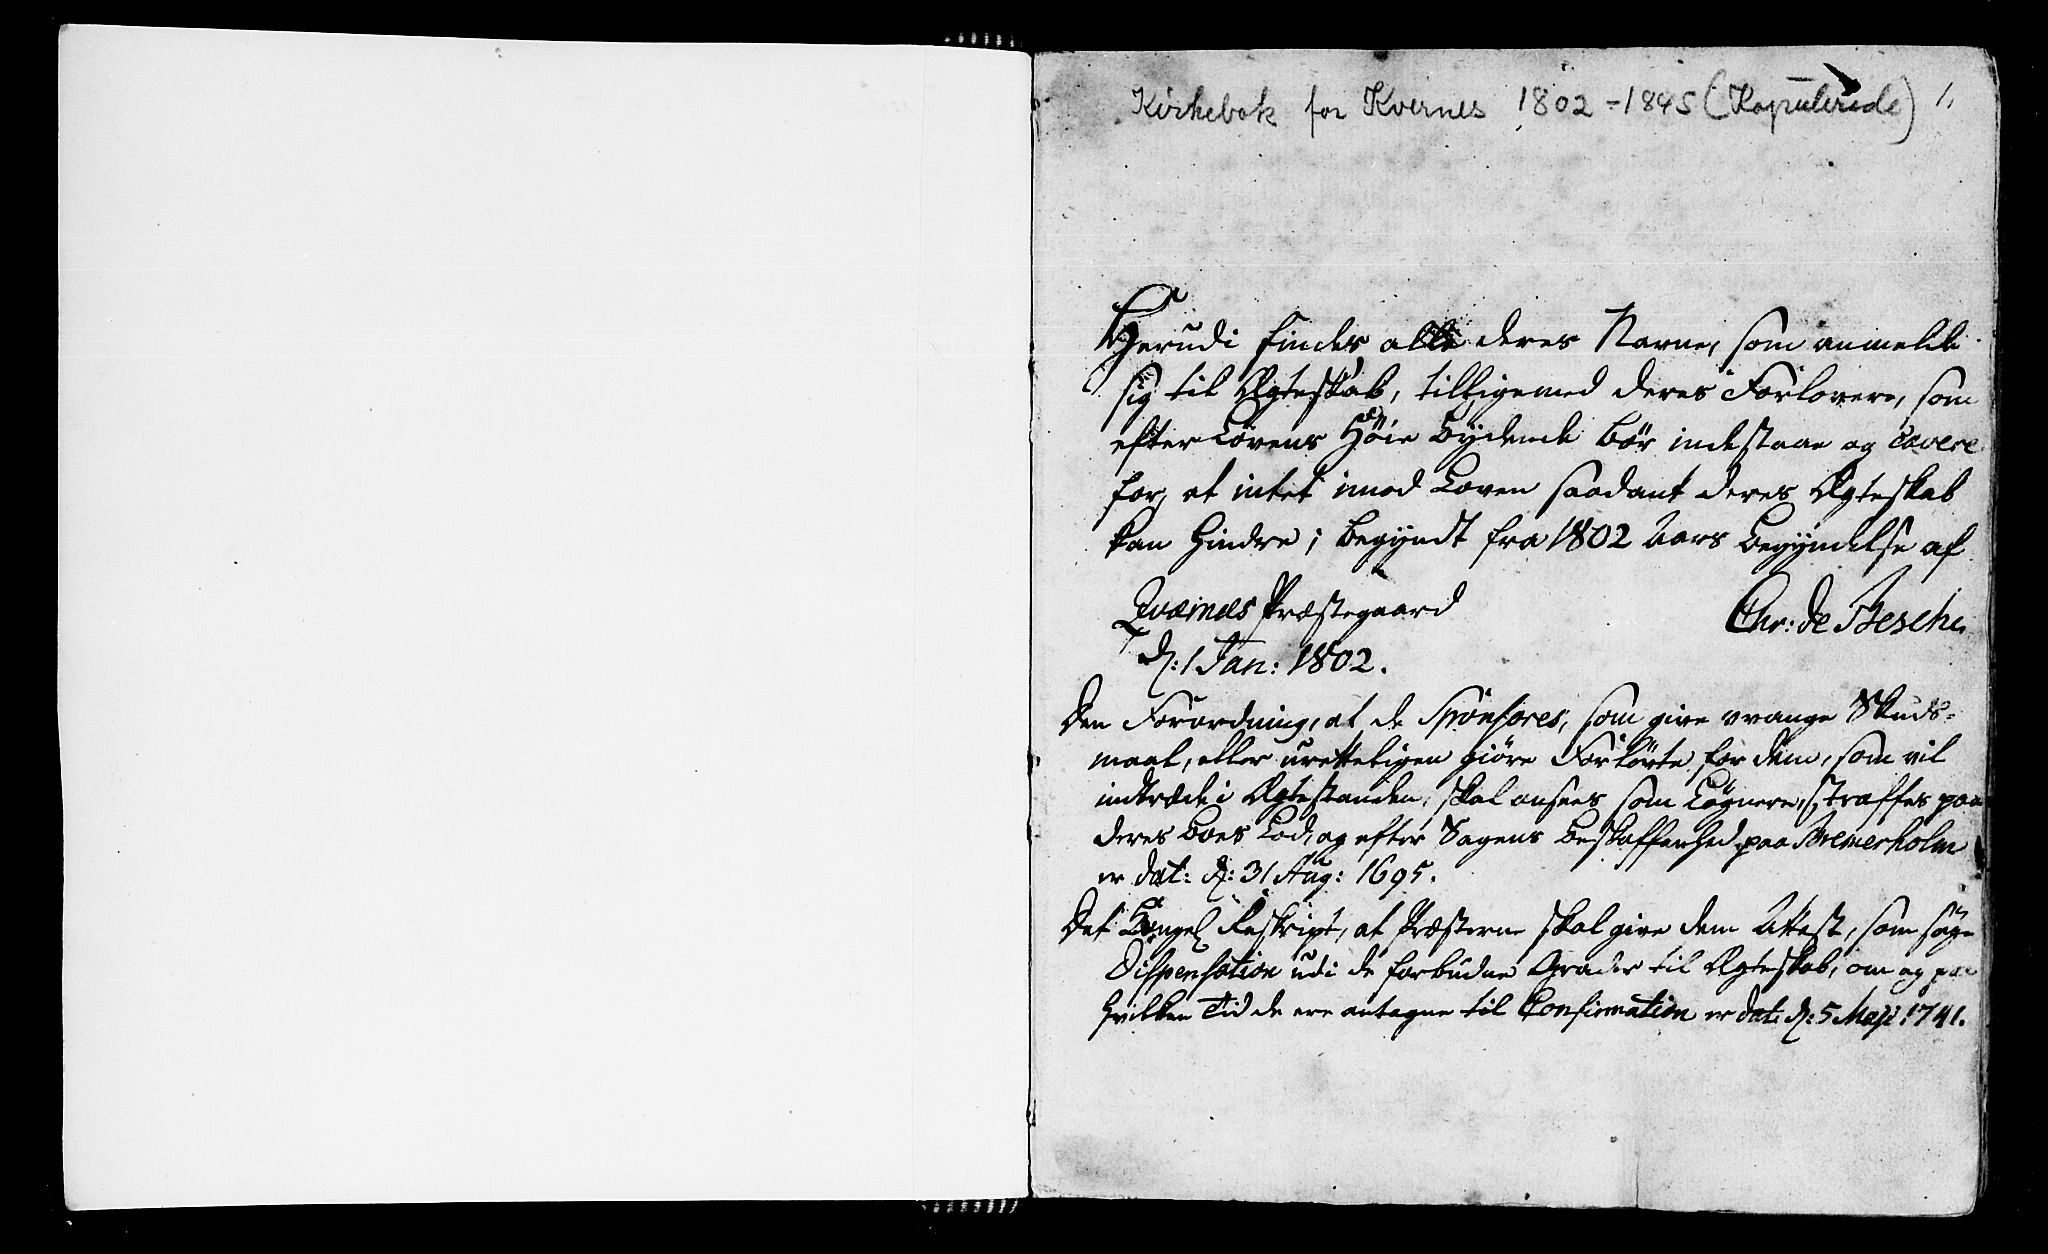 Kirkebok for Kvernes 1802-1845 (Kopulerede) 1,
Herudi findes alle deres Navne, som anmelde
sig til Ægteskab, tilligemed deres Forlovere, som
efter Lovens Høie Bydende bør indestaae og cavere
for, at intet imod Loven saadant deres Ægteskab
kan hindre; begyndt fra 1802 Aars Begyndelse af
Qværnes Præstegaard Chr: de Besche
d: 1 Jan: 1802.
Den Forordning, at de Sponsores, som give vrange Skuds-
maal, eller uretteligen giøre Forlovte for dem, som vil
indtræde i Ægtestanden, skal ansees som Løgnere, straffes paa
deres Boes Lod, og efter Sagens Beskaffenhed paa Bremerholm
er dat: d: 31 Aug: 1695.
Det Kongel Reskript, at Præsterne skal give dem Attest, som søge
Dispensation udi de forbudne Grader til Ægteskab, om og paa
hvilken Tid de ere antagne til Confirmation er dat: d: 5 Maji 1741.